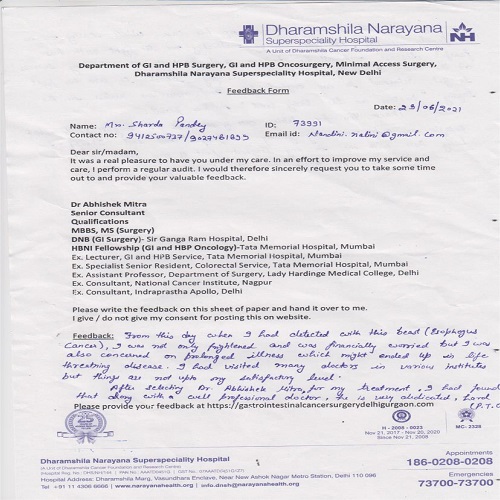 Dharamshila Narayana
Superspeciality Hospital
A Unit of Dharamshila Cancer Foundation and Research Centre
NH
Department of GI and HPB Surgery, GI and HPB Oncosurgery, Minimal Access Surgery,
Dharamshila Narayana Superspeciality Hospital, New Delhi
Feedback Form
Date: 23/06/2021
Name: Mrs. Sharda Pandey ID: 73991
Contact no: Email id:
Dear sir/madam,
It was a real pleasure to have you under my care. In an effort to improve my service and
care, I perform a regular audit. I would therefore sincerely request you to take some time
out to and provide your valuable feedback.
Dr Abhishek Mitra
Senior Consultant
Qualifications
MBBS, MS (Surgery)
DNB (GI Surgery)- Sir Ganga Ram Hospital, Delhi
HBNI Fellowship (GI and HBP Oncology)-Tata Memorial Hospital, Mumbai
Ex. Lecturer, GI and HPB Service, Tata Memorial Hospital, Mumbai
Ex. Specialist Senior Resident, Colorectal Service, Tata Memorial Hospital, Mumbai
Ex. Assistant Professor, Department of Surgery, Lady Hardinge Medical College, Delhi
Ex. Consultant, National Cancer Institute, Nagpur
Ex. Consultant, Indraprastha Apollo, Delhi
Please write the feedback on this sheet of paper and hand it over to me.
I give / do not give my consent for posting this on website.
Feedback: From this day when I had detected with this beast (Esophogus
Cancer), I was not only frightened and was financially worried but I was
also concerned on prolonged illness which might ended up in life
threatning disease. I had visited many doctors in various institutes
but things are not upto my satisfactory level.
After selecting Dr. Abhishek Mitra, for my treatment, I had found
that along with a well professional doctor, he is very dedicated, hard
P.T.O
Please provide your feedback at https://gastrointestinalcancersurgerydelhigurgaon.com
H-2008-0023
Nov 21, 2017 - Nov 20, 2020
Since Nov 21, 2008
MC- 2328
Dharamshila Narayana Superspeciality Hospital
(A Unit of Dharamshila Cancer Foundation and Research Centre)
Hospital Address: Dharamshila Marg, Vasundhara Enclave, Near New Ashok Nagar Metro Station, Delhi 110 096
Tel: +91 11 4306 6666 | www.narayanahealth.org | info.dnsh@narayanahealth.org
Appointments
186-0208-0208
Emergencies
73700-73700